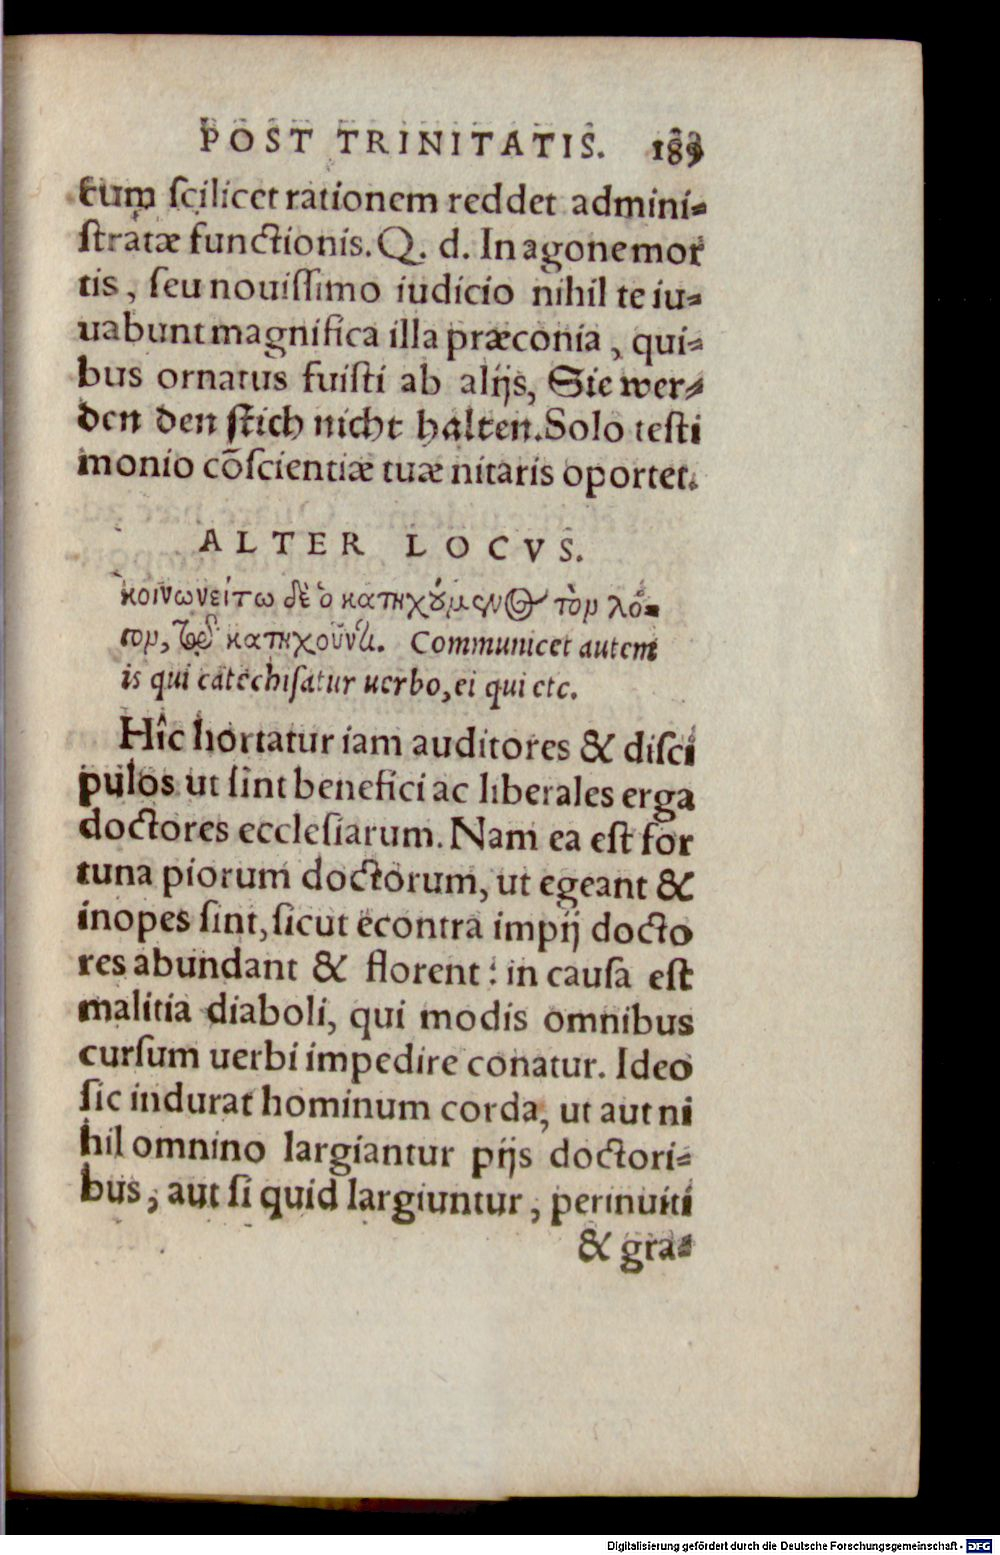 POST TRINITATIS. 189
tum scilicet rationem reddet admini-
stratæ functionis. Q. d. In agone mor
tis, seu nouissimo iudicio nihil te iu-
uabunt magnifica illa præconia, qui-
bus ornatus fuisti ab alijs, Sie wer-
den den stich nicht halten. Solo testi
monio cõscientiæ tuæ nitaris oportet.
ALTER LOCVS.
κοινωνείτω δὲ ὁ κατηχούμενος τὸν λό-
τον, τῷ κατηχοῦντι. Communicet autem
is qui catechisatur uerbo, ei qui etc.
Hîc hortatur iam auditores & disci
pulos ut sint benefici ac liberales erga
doctores ecclesiarum. Nam ea est for
tuna piorum doctorum, ut egeant &
inopes sint, sicut econtra impij docto
res abundant & florent: in causa est
malitia diaboli, qui modis omnibus
cursum uerbi impedire conatur. Ideo
sic indurat hominum corda, ut aut ni
hil omnino largiantur pijs doctori-
bus, aut si quid largiuntur, perinuiti
& gra-
Digitalisierung gefördert durch die Deutsche Forschungsgemeinschaft - DFG